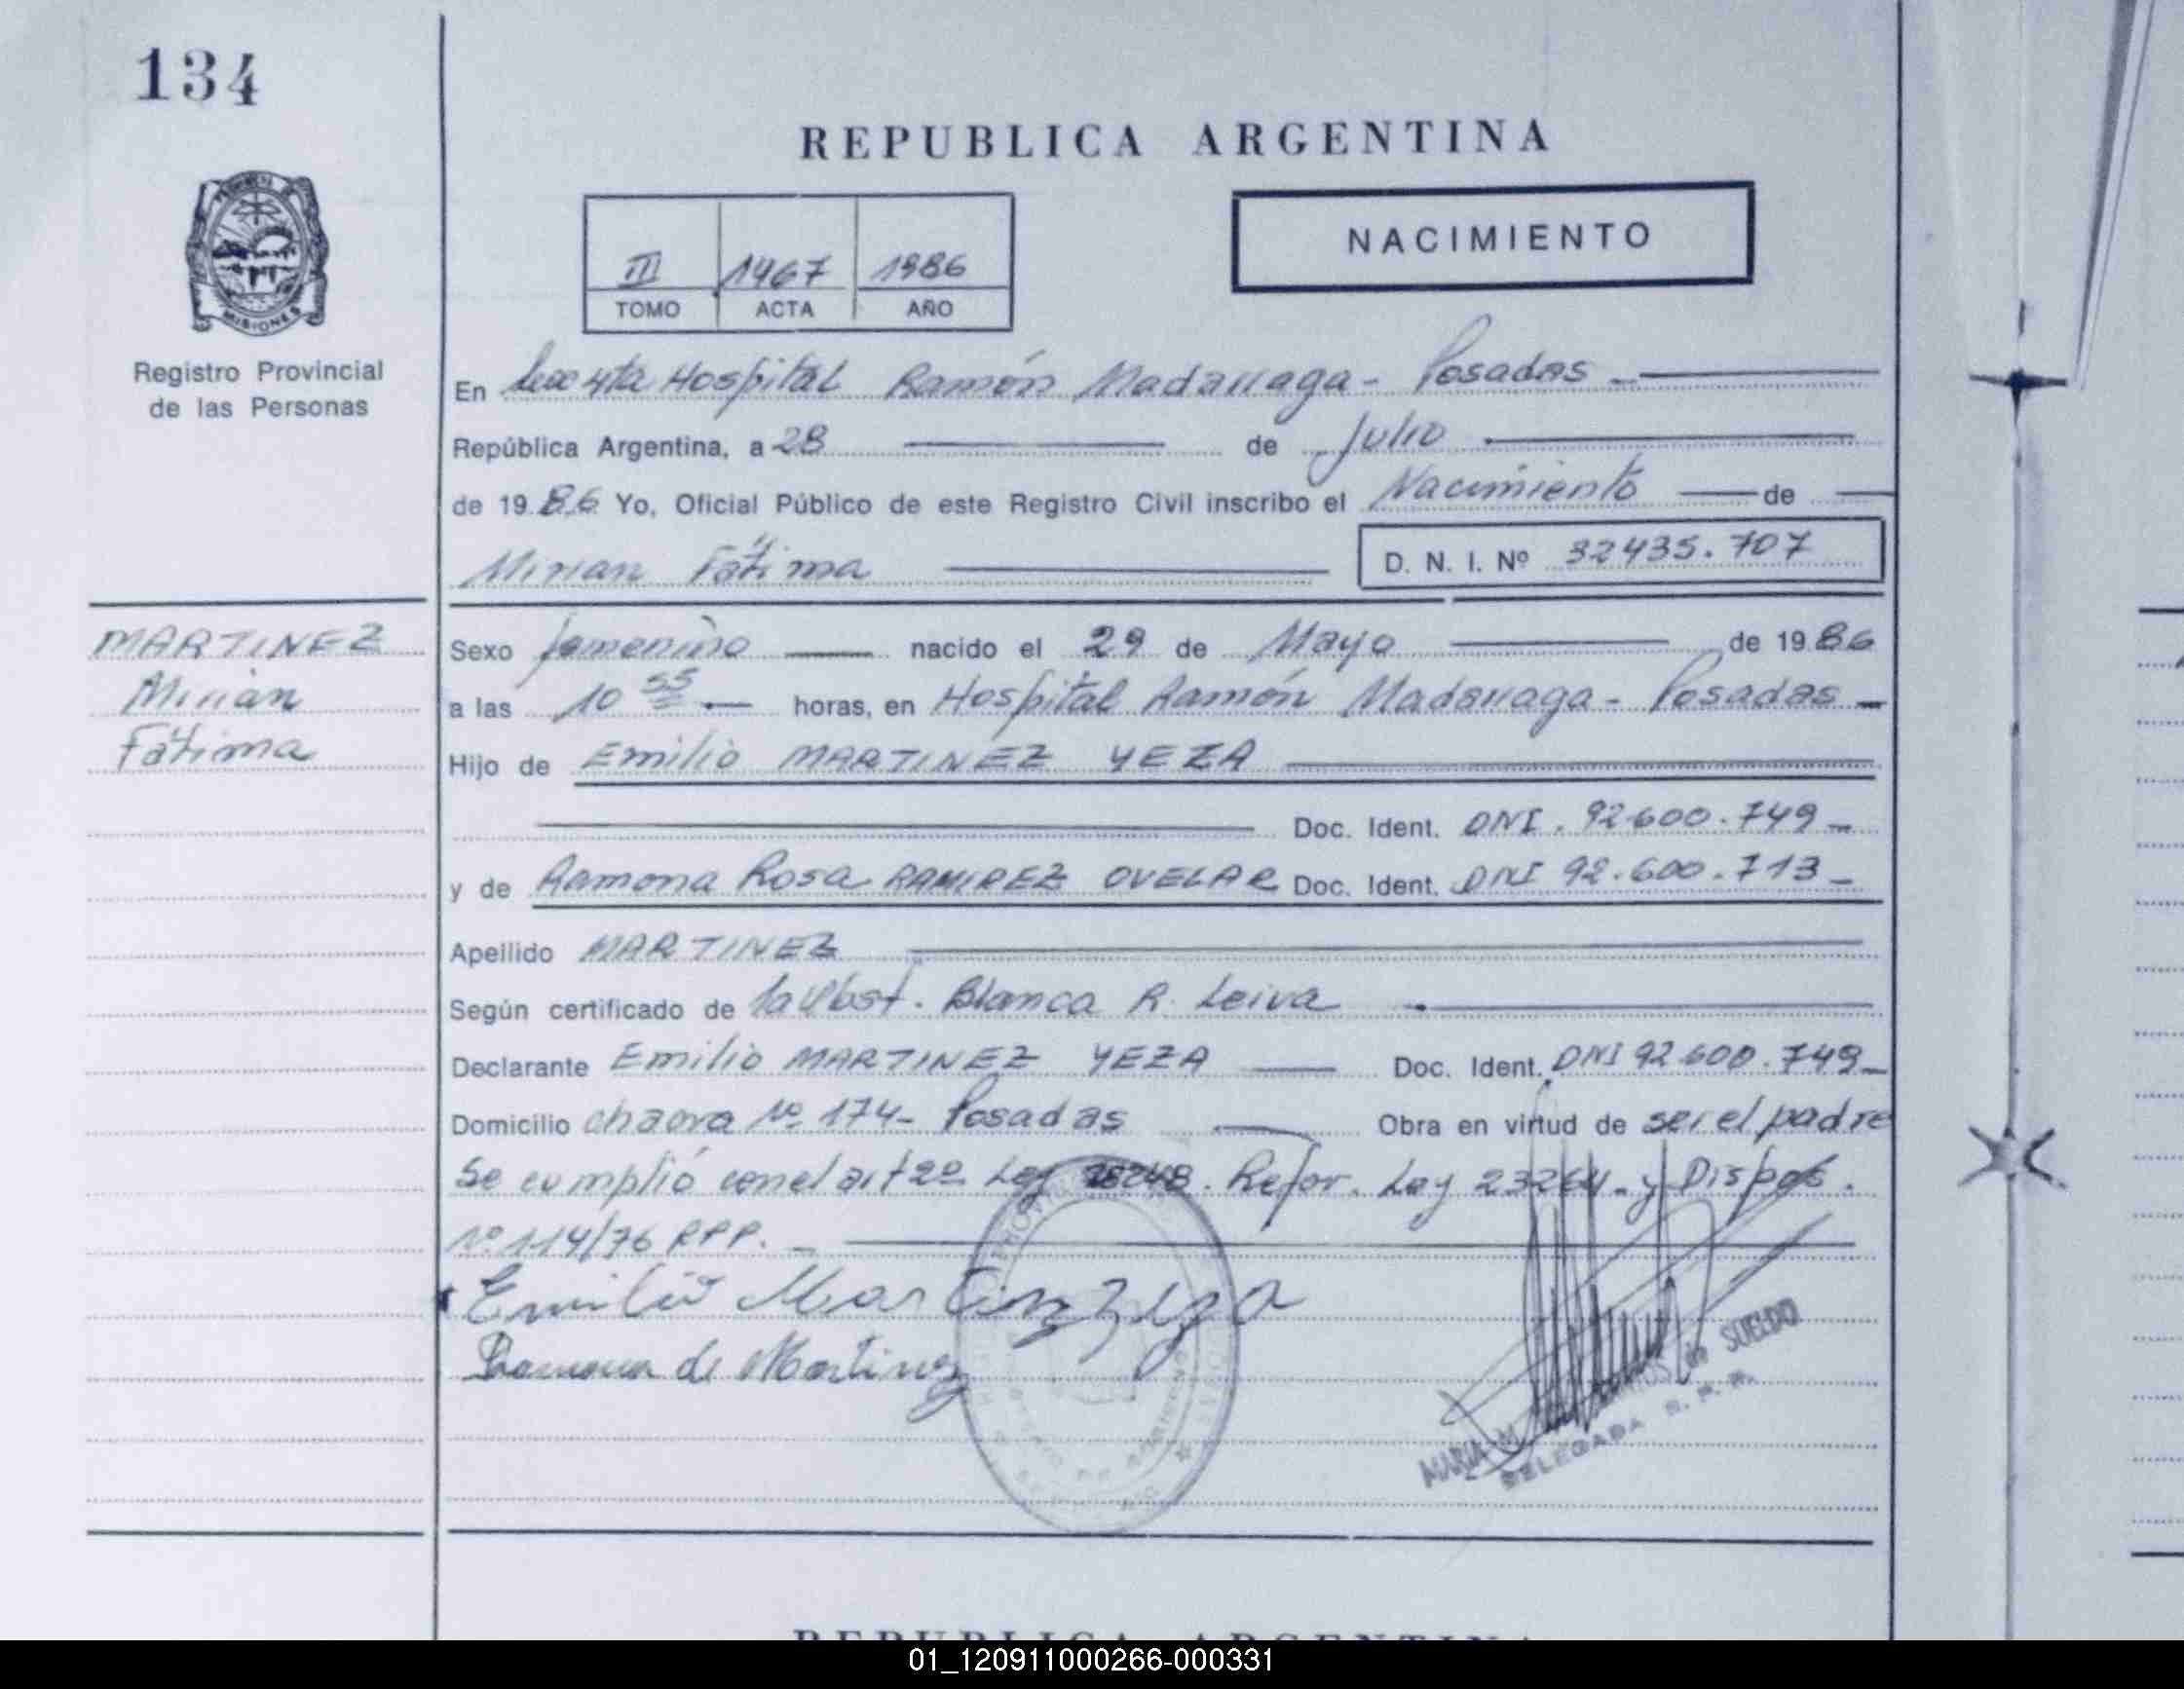 134
REPUBLICA ARGENTINA
NACIMIENTO
III 1467 1986
TOMO ACTA AÑO
MISIONES
Registro Provincial
de las Personas
En Secc 4ta Hospital Ramón Madariaga - Posadas -
República Argentina, a 28 de Julio
de 1986 Yo, Oficial Público de este Registro Civil inscribo el Nacimiento de
Mirian Fátima D. N. I. Nº 32435.707
MARTINEZ
Mirian
Fátima
Sexo femenino nacido el 29 de Mayo de 1986
a las 10 55 horas, en Hospital Ramón Madariaga - Posadas -
Hijo de Emilio MARTINEZ YEZA
Doc. Ident. DNI. 92.600.749 -
y de Ramona Rosa RAMIREZ OVELAR Doc. Ident. DNI 92.600.713 -
Apellido MARTINEZ
Según certificado de la Obst. Blanca R. Leiva
Declarante Emilio MARTINEZ YEZA Doc. Ident. DNI 92.600.749 -
Domicilio chacra Nº 174 - Posadas Obra en virtud de ser el padre
Se cumplió con el art 2º Ley 18248. Refor. Ley 23264 - y Dispos.
Nº 114/76 RPP. -
Emilio Martinez Yeza
Ramona de Martinez
MARIA de SUELDO
DELEGADA R. P. P.
REPUBLICA ARGENTINA
01_120911000266-000331